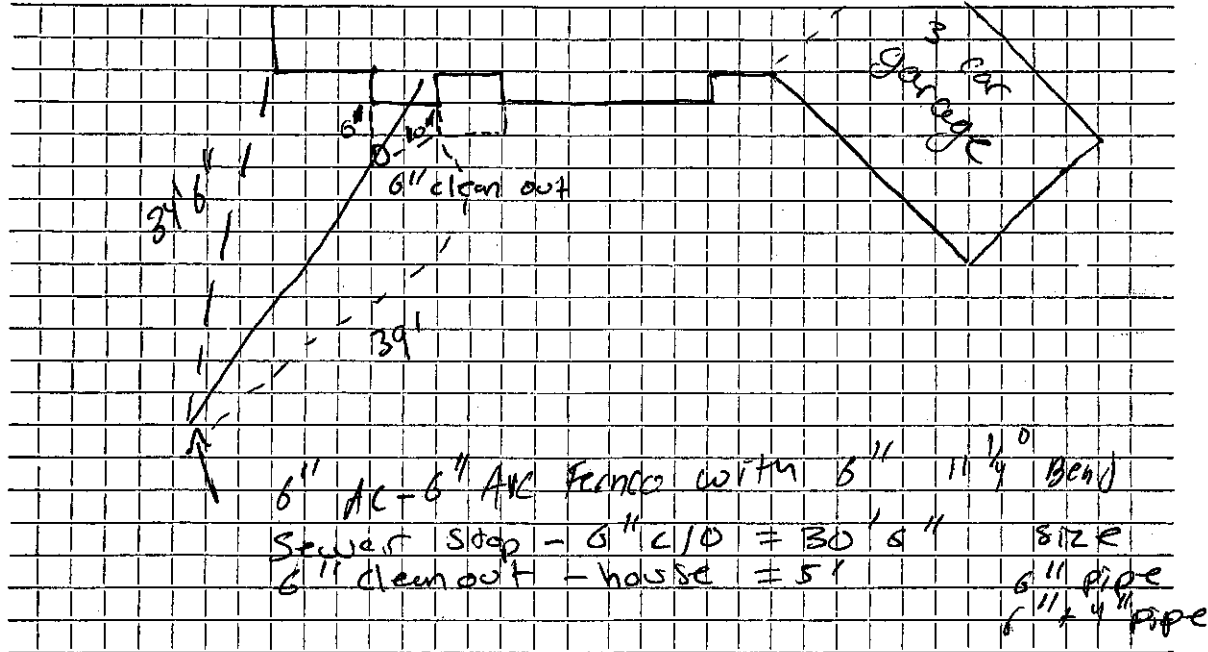 3 car
garage
6" 10"
6" clean out
34'6"
39'
6" AC - 6" PVC Fernco with 6" 11 1/4° Bend
Sewer Stop - 6" c/o = 30'6" size
6" clean out - house = 5' 6" pipe
6" + 4" pipe